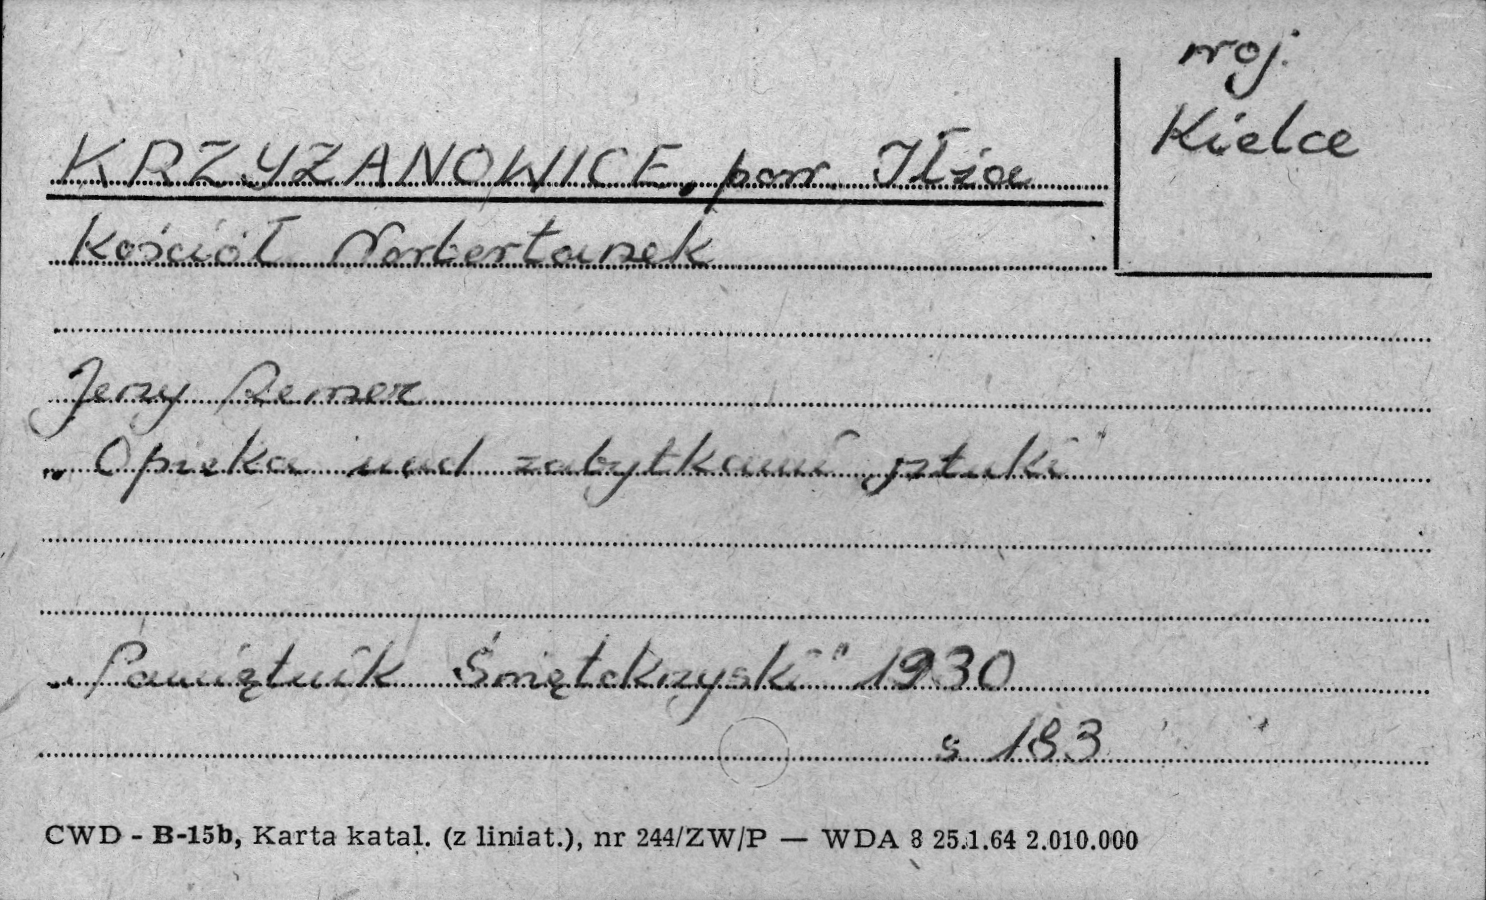 woj.
Kielce
KRZYŻANOWICE, pow. Iłża
Kościół Norbertanek
Jerzy Remer
„Opieka nad zabytkami sztuki"
„Pamiętnik Świętokrzyski" 1930
s 183
CWD - B-15b, Karta katal. (z liniat.), nr 244/ZW/P — WDA 8 25.1.64 2.010.000